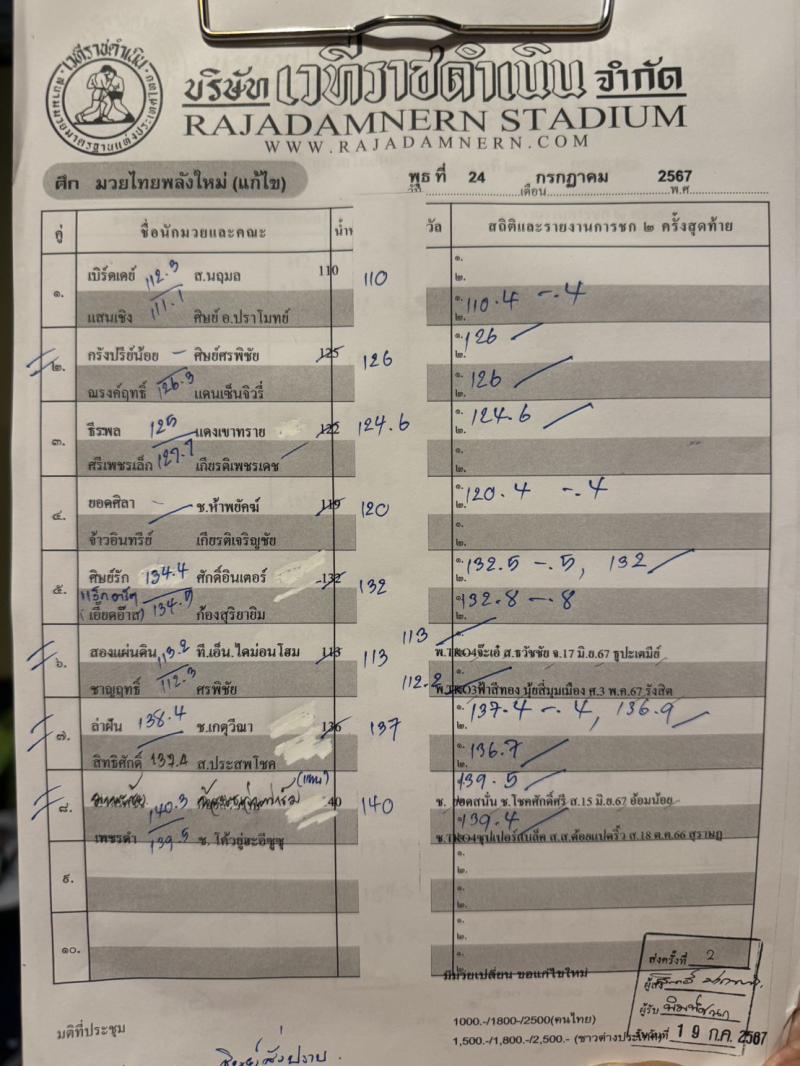 เวทีราชดำเนิน
บริษัท เวทีราชดำเนิน จำกัด
RAJADAMNERN STADIUM
WWW.RAJADAMNERN.COM
ศึก มวยไทยพลังใหม่ (แก้ไข) พุธ ที่ 24 เดือน กรกฎาคม พ.ศ 2567
คู่ ชื่อนักมวยและคณะ วัล สถิติและรายงานการชก ๒ ครั้งสุดท้าย
๑. เบิร์ตเดย์ 112.3 ส.นฤมล 110 110 ๑. ๒.
แสนเชิง 111.1 ศิษย์ อ.ปราโมทย์ ๑. ๒. 110.4 -.4
๒. กรังปรีย์น้อย - ศิษย์ศรพิชัย 125 126 ๑. ๒. 126
ณรงค์ฤทธิ์ 126.3 แดนเซ็นจิวรี่ ๑. ๒. 126
๓. ธีรพล 125 แดงเขาทราย 122 124.6 ๑. ๒. 124.6
ศรีเพชรเล็ก 127.7 เกียรติเพชรเดช ๑. ๒.
๔. ยอดศิลา - ช.ห้าพยัคฆ์ 119 120 ๑. ๒. 120.4 -.4
จ้าวอินทรีย์ เกียรติเจริญชัย ๑. ๒.
๕. ศิษย์รัก 134.4 ศักดิ์อินเตอร์ 132 132 ๑. ๒. 132.5 -.5, 132
(เอี๊ยดอ๊าส) 134.5 ก้องสุริยายิม ๑. ๒. 132.8 -.8
๖. สองแผ่นดิน 113.2 ที.เอ็น.ไดม่อนโฮม 113 113 113 พ.TKO4จ๊ะเอ๋ ส.ธวัชชัย จ.17 มิ.ย.67 ธูปะเตมีย์
ชาญฤทธิ์ 112.3 ศรพิชัย 112.2 พ.TKO3ฟ้าสีทอง นุ้ยสี่มุมเมือง ศ.3 พ.ค.67 รังสิต
๗. ล่าฝัน 138.4 ช.เกตุวีณา 136 137 ๑. ๒. 137.4 -.4, 136.9
สิทธิศักดิ์ 137.4 ส.ประสพโชค ๑. ๒. 136.7
๘. 140.3 (แทน) 40 140 139.5 ช. ยอดสนั่น ช.โชคศักดิ์ศรี ส.15 มิ.ย.67 อ้อมน้อย
เพชรดำ 139.5 ช. โค้วยู่ฮะอีซูซุ 139.4 ช.TKO4ซุปเปอร์สบล็ค ส.ส.ต้อยแปดริ้ว ส.18 ต.ค.66 สุราษฎ
๙. ๑. ๒.
๑. ๒.
๑๐. ๑. ๒.
๑. ๒.
มีมวยเปลี่ยน ขอแก้ไขใหม่
ส่งครั้งที่ 2
ผู้ส่ง
ผู้รับ
รับวันที่ 19 ก.ค. 2567
มติที่ประชุม
1000.-/1800-/2500(คนไทย)
1,500.-/1,800.-/2,500.- (ชาวต่างประเทศ)